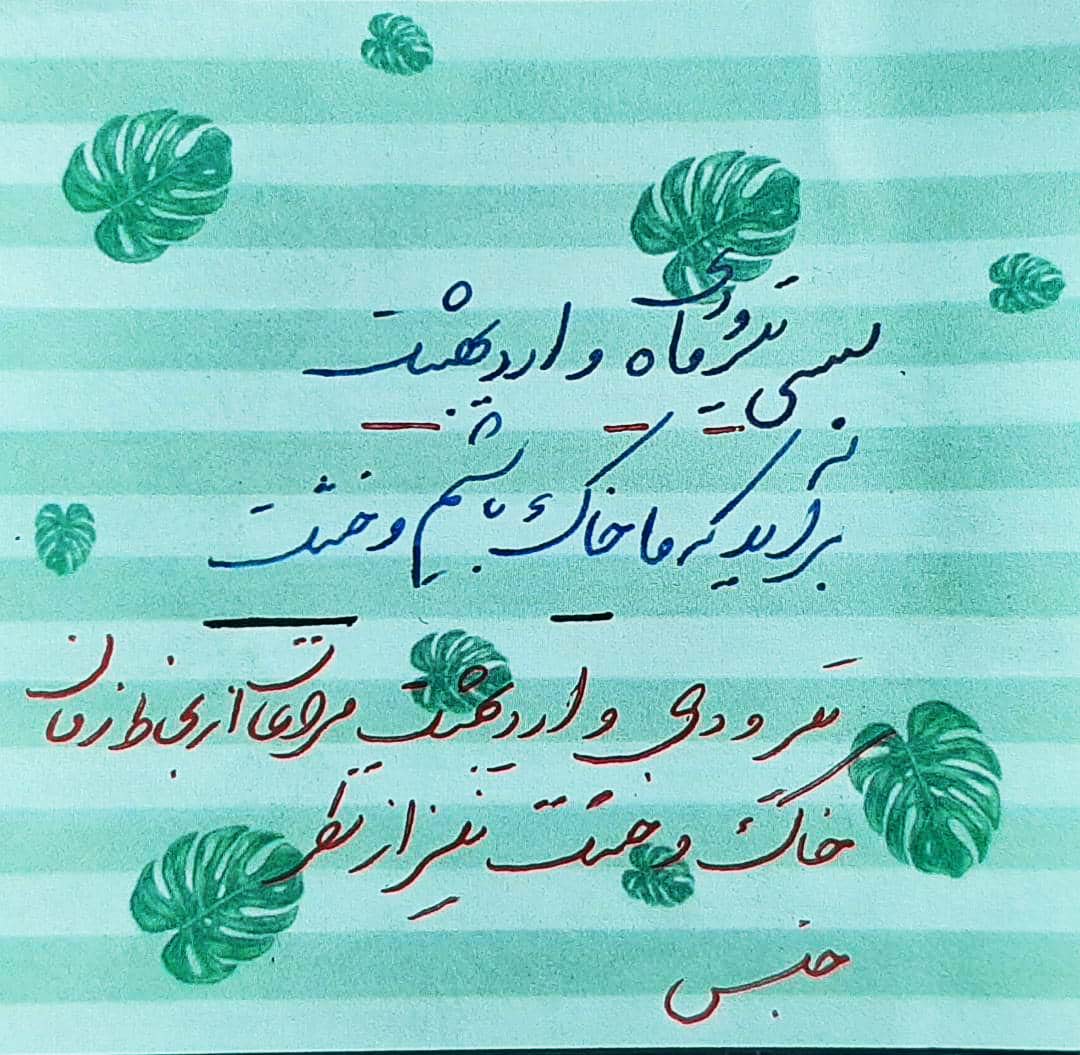 بسی تیر و دی ماه و اردیبهشت
برآید که ما خاک باشیم و خشت
تیر و دی و اردیبهشت مراعات از لحاظ زمان
خاک و خشت نیز از نظر
جنس